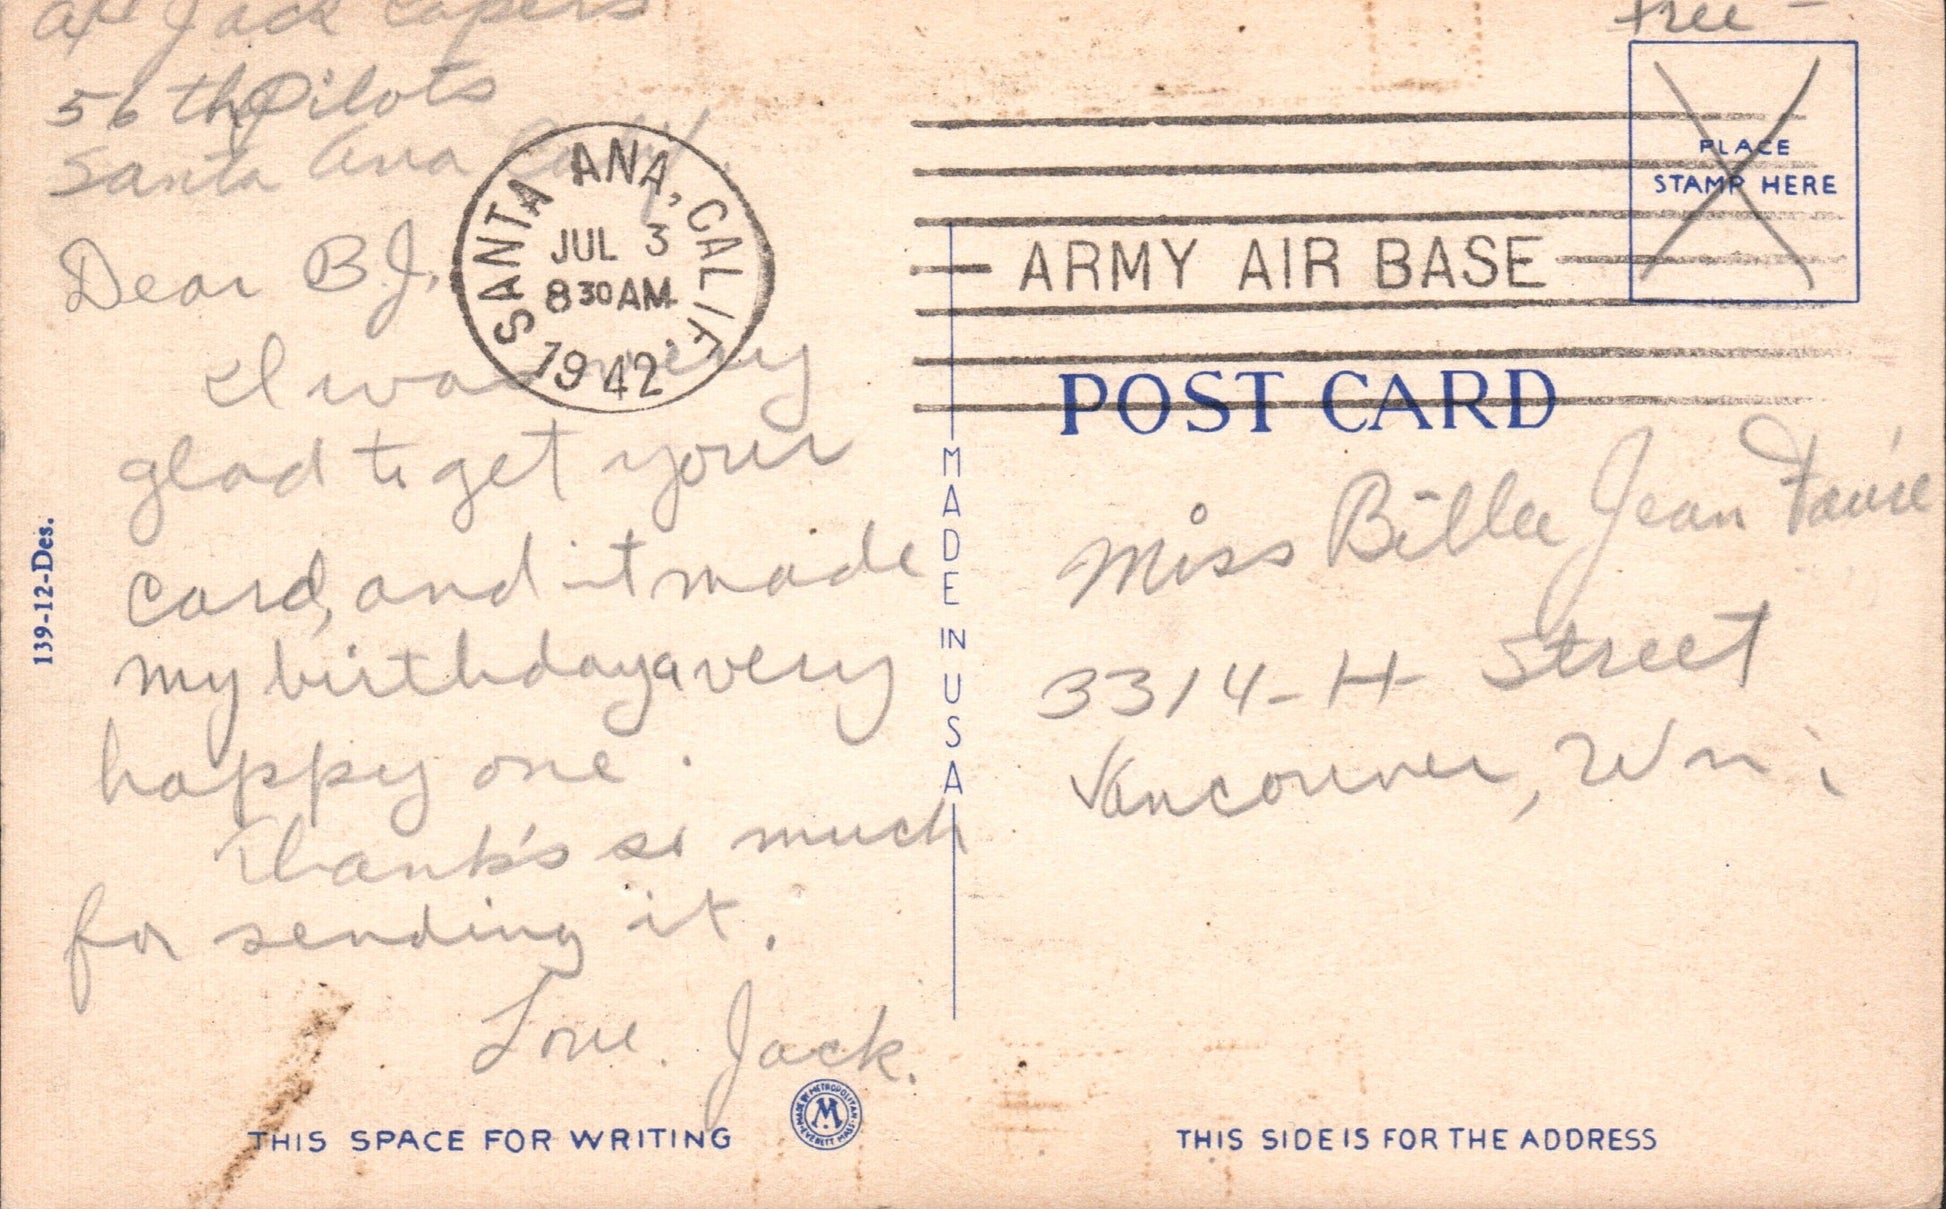 A/C Jack Capers
56th Pilots
Santa Ana Calif.
Free -
PLACE
STAMP HERE
SANTA ANA, CALIF.
JUL 3
8 30 AM
1942
ARMY AIR BASE
POST CARD
Dear B.J.,
I was very
glad to get your
card, and it made
my birthday a very
happy one.
Thank's so much
for sending it.
Love. Jack.
139-12-Des.
MADE IN USA
Miss Billee Jean
3314-H- Street
Vancouver, Wn.
THIS SPACE FOR WRITING
MADE BY METROPOLITAN
M
EVERETT MASS
THIS SIDE IS FOR THE ADDRESS